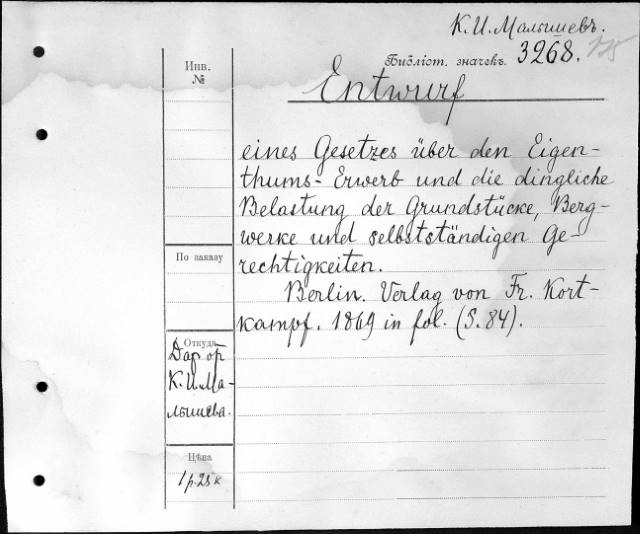 К. И. Малышевъ.
Библіот. значекъ. 3268. 175
Инв.
№
Entwurf
eines Gesetzes über den Eigen-
thums-Erwerb und die dingliche
Belastung der Grundstücke, Berg-
werke und selbstständigen Ge-
rechtigkeiten.
Berlin. Verlag von Fr. Kort-
kampf. 1869 in fol. (S. 84).
По заказу
Откуда
Дар от
К. И. Ма-
лышева.
Цѣна
1 р. 25 к